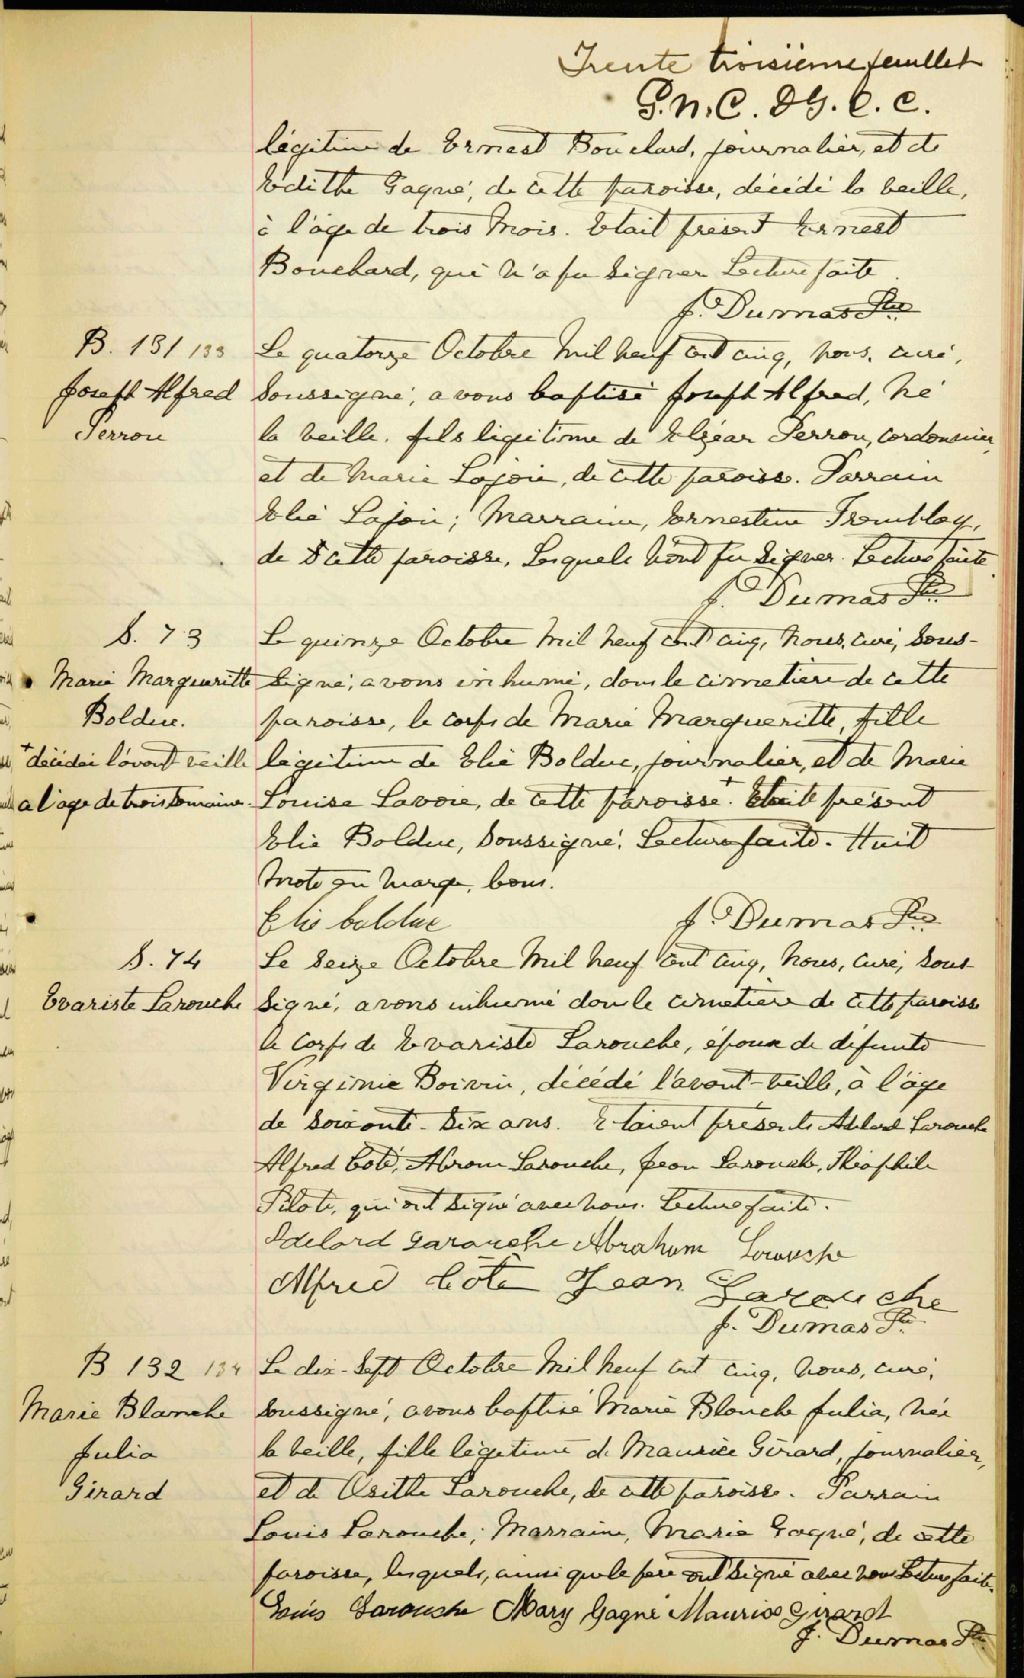 Trente troisième feuillet
G. N. C. D G. C. C.
légitime de Ernest Bouchard, journalier, et de
Edithe Gagné, de cette paroisse, décédé la veille,
à l'âge de trois mois. Etait présent Ernest
Bouchard, qui n'a pu signer Lecture faite.
J. Dumas Ptre
B. 131 133
Joseph Alfred
Perron
Le quatorze Octobre mil neuf cent cinq, nous, curé,
soussigné, avons baptisé Joseph Alfred, né
la veille, fils légitime de Elzéar Perron, cordonnier,
et de Marie Lajoie, de cette paroisse. Parrain
Elie Lajoie; Marraine, Ernestine Tremblay,
de cette paroisse, lesquels n'ont pu signer. Lecture faite.
J. Dumas Ptre
S. 73
Marie Margueritte
Bolduc.
+ décédée l'avant veille
a l'age de trois semaines.
Le quinze Octobre mil neuf cent cinq, nous, curé, sous-
signé, avons inhumé, dans le cimetière de cette
paroisse, le corps de Marie Margueritte, fille
légitime de Elie Bolduc, journalier, et de Marie
Louise Lavoie, de cette paroisse +. Etait présent
Elie Bolduc, soussigné. Lecture faite. Huit
mots en marge, bons.
Elie bolduc J. Dumas Ptre
S. 74
Evariste Larouche
Le seize Octobre mil neuf cent cinq, nous, curé, sous-
signé, avons inhumé dans le cimetière de cette paroisse
le corps de Evariste Larouche, époux de défunte
Virginie Boivin, décédé l'avant-veille, à l'âge
de soixante-six ans. Etaient présents Adelard Larouche
Alfred Coté, Abram Larouche, Jean Larouche, Théophile
Pilote, qui ont signé avec nous. Lecture faite.
Adelard Larouche Abraham Larouche
Alfred Côté Jean Larouche
J. Dumas Ptre
B 132 134
Marie Blanche
Julia
Girard
Le dix-sept Octobre mil neuf cent cinq, nous, curé,
soussigné, avons baptisé Marie Blanche Julia, née
la veille, fille légitime de Maurice Girard, journalier,
et de Osithe Larouche, de cette paroisse. Parrain
Louis Larouche; Marraine, Marie Gagné, de cette
paroisse, lesquels, ainsi que le père ont signé avec nous Lecture faite.
Louis Larouche Mary Gagné Maurice Girard
J. Dumas Ptre